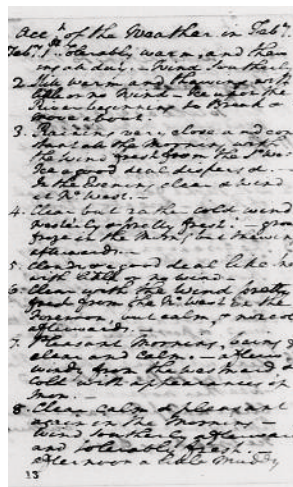 Acct of the Weather in Feby.
Feby. 1st. Tolerably warm, and thaw
ing all day. Wind Southerly
2. Still warm and thawing with
little or no Wind - Ice in the
River beginning to break &
move about.
3. Raining very close and con
stant all the Morning with
the wind fresh from the So. W.
Ice a good deal dispers'd.
In the Evening clear & wind
at No. West.
4. Clear but rather cold wind
Westerly & pretty fresh. grou
froze in the Morng, but thawing
afterwards.
5. clear & a good deal like
with little or no wind.
6. Clear with the Wind pretty
fresh from the No. West in the
Forenoon, but calm, &
afterwards.
7. Pleasant Morning, being
clear and Calm. - afterw
winds from the Eastward &
Cold with appearances of
8. Clear calm & pleasant
again in the Morning -
Wind Southerly afterwar
and tolerably fresh.
afternoon a little Muddy
13